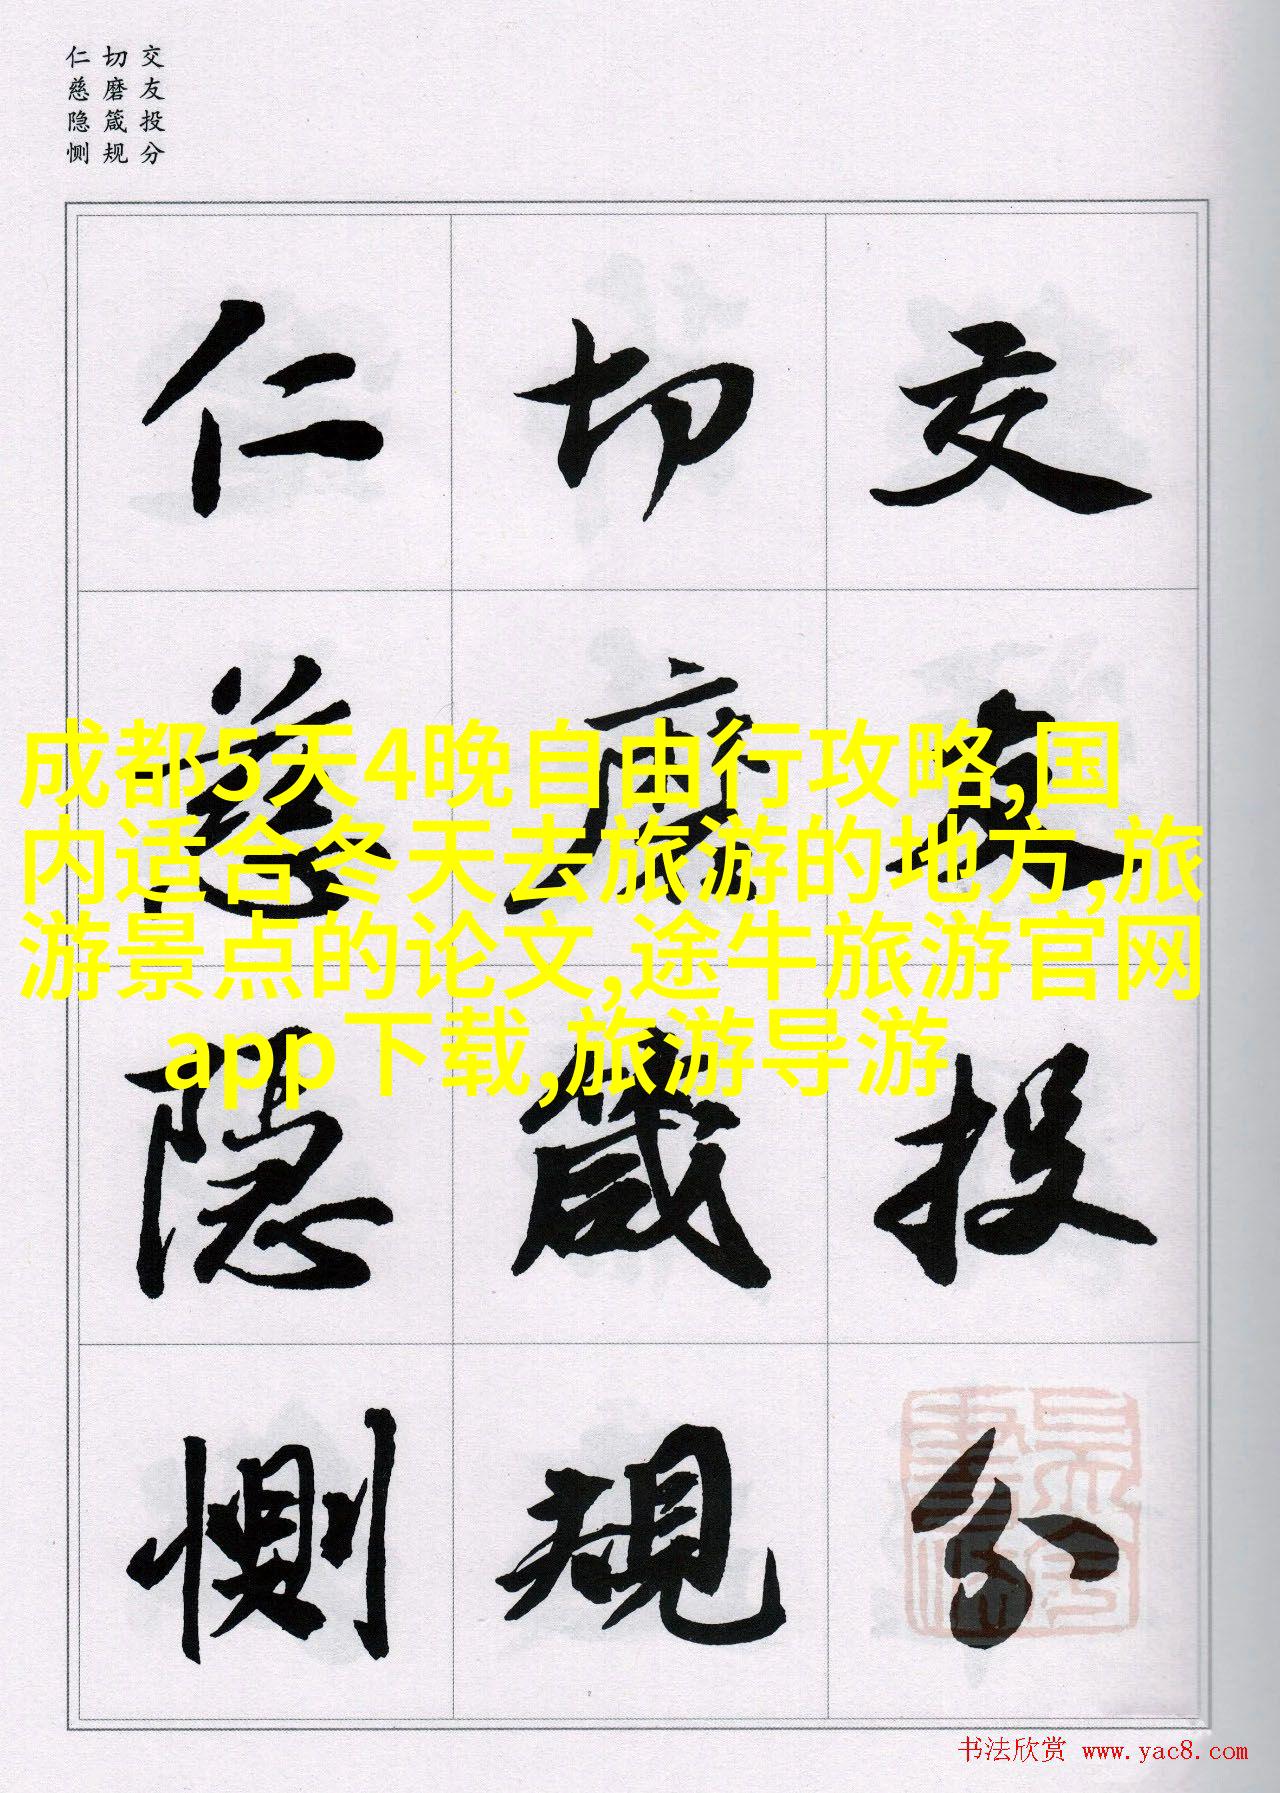 交友投分
切磨箴规
仁慈隐恻
交友投分
切磨箴規
仁慈隐惻
成都5天4晚自由行攻略,国
内适合冬天去旅游的地方,旅
游景点的论文,途牛旅游官网
app下载,旅游导游
书法欣赏 www.yac8.com